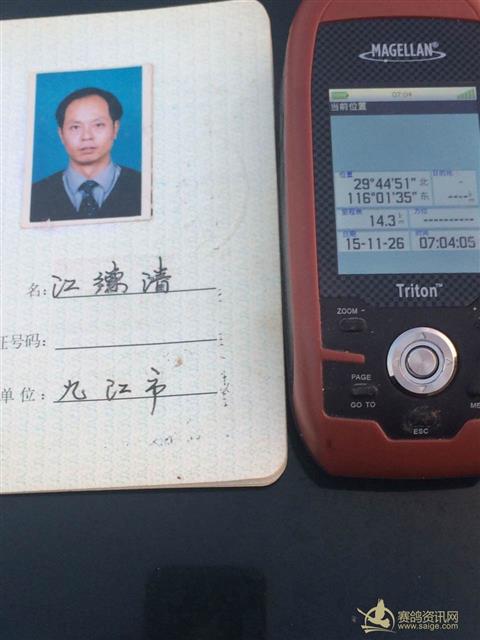 名: 江德清
证号码:
单位: 九江市
MAGELLAN®
07:04
当前位置
位置
目的地
29°44'51" 北
116°01'35" 东
-----
里程表
方位
14.3 k m
----------
日期
时间
15-11-26
07:04:05
Triton™
ZOOM -
PAGE
GO TO
ME
ESC
赛鸽资讯网
www.saige.com